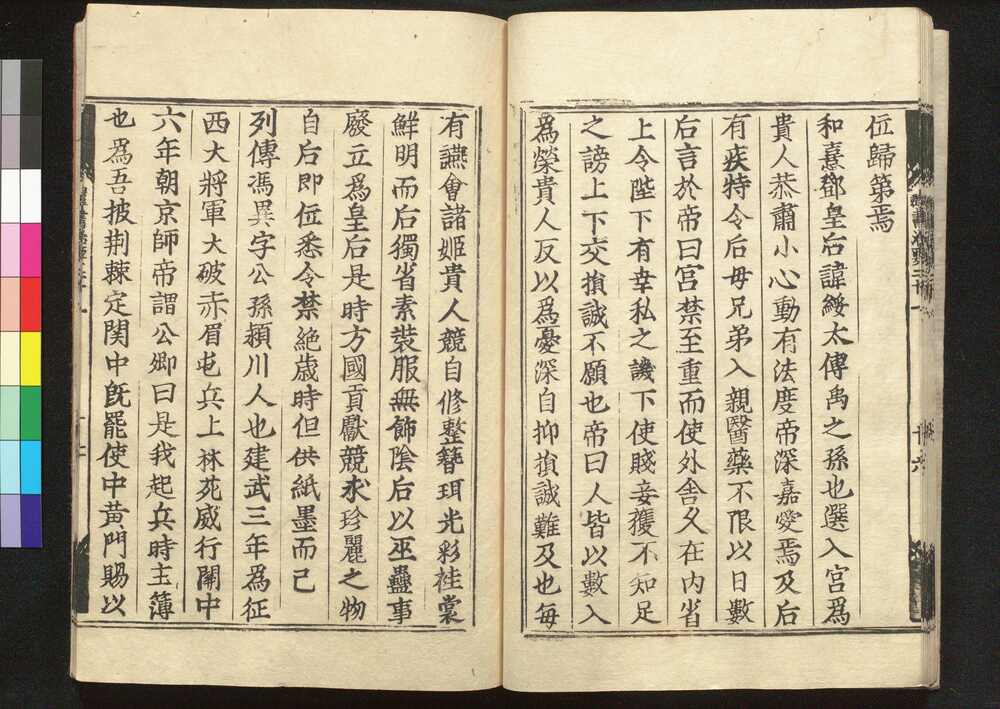 位歸第焉
和熹鄧皇后諱綏太傅禹之孫也選入宮爲
貴人恭肅小心動有法度帝深嘉愛焉及后
有疾特令后母兄弟入親醫藥不限以日數
后言於帝曰宮禁至重而使外舎久在内省
上令陛下有幸私之譏下使賤妾獲不知足
之謗上下交損誠不願也帝曰人皆以數入
爲榮貴人反以爲憂深自抑損誠難及也毎
有讌會諸姬貴人競自修整簪珥光彩袿裳
鮮明而后獨省素裝服無飾陰后以巫蠱事
廢立爲皇后是時方國貢獻競求珍麗之物
自后即位悉令禁絶歳時但供紙墨而已
列傳馮異字公孫潁川人也建武三年爲征
西大將軍大破赤眉屯兵上林苑威行關中
六年朝京師帝謂公卿曰是我起兵時主簿
也爲吾披荆棘定関中既罷使中黃門賜以